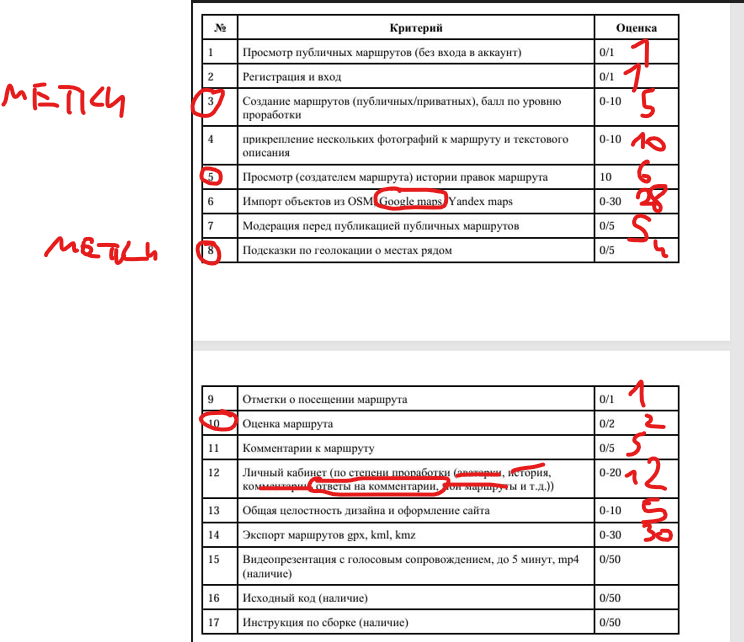 № Критерий Оценка
1 Просмотр публичных маршрутов (без входа в аккаунт) 0/1 1
2 Регистрация и вход 0/1 1
МЕТКИ
3 Создание маршрутов (публичных/приватных), балл по уровню 0-10 5
проработки
4 прикрепление нескольких фотографий к маршруту и текстового 0-10 10
описания
5 Просмотр (создателем маршрута) истории правок маршрута 10 6
6 Импорт объектов из OSM, Google maps, Yandex maps 0-30 28
7 Модерация перед публикацией публичных маршрутов 0/5 5
МЕТКИ
8 Подсказки по геолокации о местах рядом 0/5 4
9 Отметки о посещении маршрута 0/1 1
10 Оценка маршрута 0/2 2
11 Комментарии к маршруту 0/5 5
12 Личный кабинет (по степени проработки (аватарки, история, 0-20 12
комментарии, ответы на комментарии, мои маршруты и т.д.))
13 Общая целостность дизайна и оформление сайта 0-10 5
14 Экспорт маршрутов gpx, kml, kmz 0-30 30
15 Видеопрезентация с голосовым сопровождением, до 5 минут, mp4 0/50
(наличие)
16 Исходный код (наличие) 0/50
17 Инструкция по сборке (наличие) 0/50